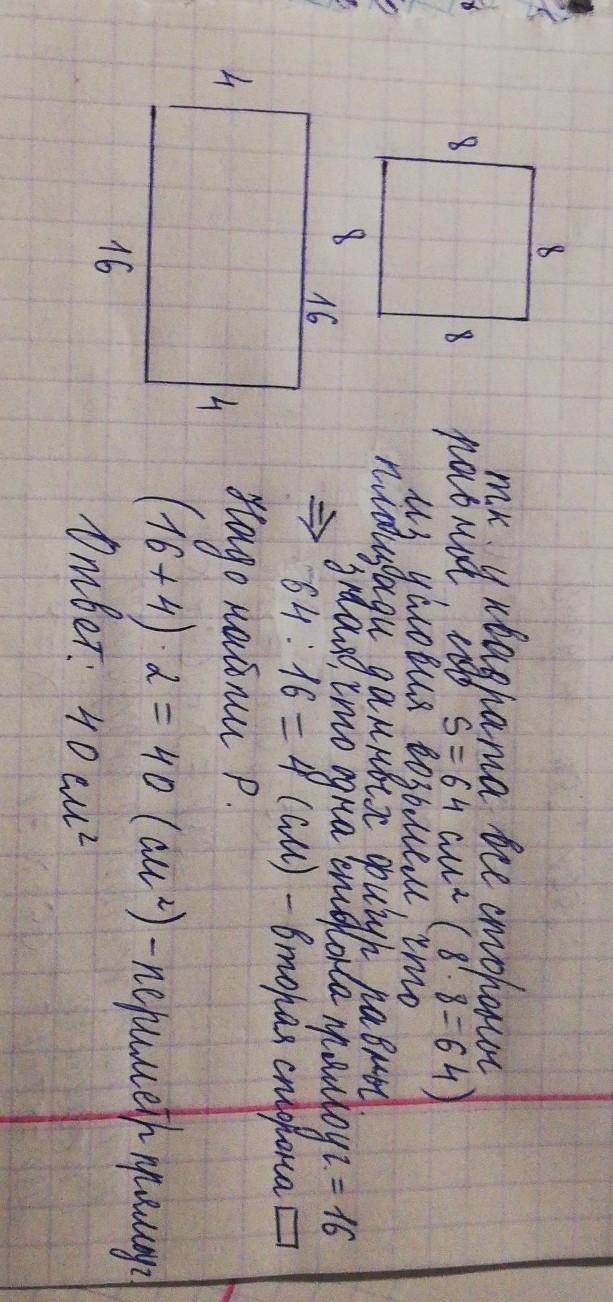 8
8
8
8
4
16
16
4
т.к. у квадрата все стороны
равны, его S = 64 см² (8·8=64)
из условия возьмем, что
площади данных фигур равны.
⇒ зная, что одна сторона прямоуг. = 16
64 : 16 = 4 (см) – вторая сторона □
Надо найти P.
(16+4)·2 = 40 (см²) – периметр прямоуг.
Ответ: 40 см²